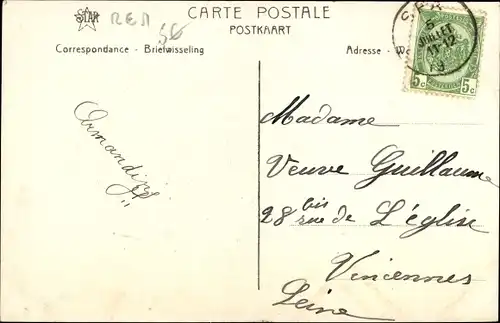 STAR
REM
5€
CARTE POSTALE
POSTKAART
Correspondance - Briefwisseling
Adresse -
SPA
5
JUILLET
11-12
5c 5c
Armandine
Madame
Veuve Guillaume
28 bis rue de L'église
Vincennes
Seine